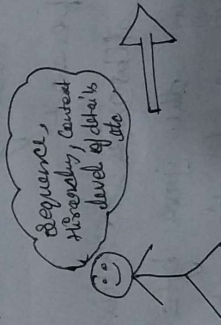 Sequence,
Hirarachy, Context
level of details
etc